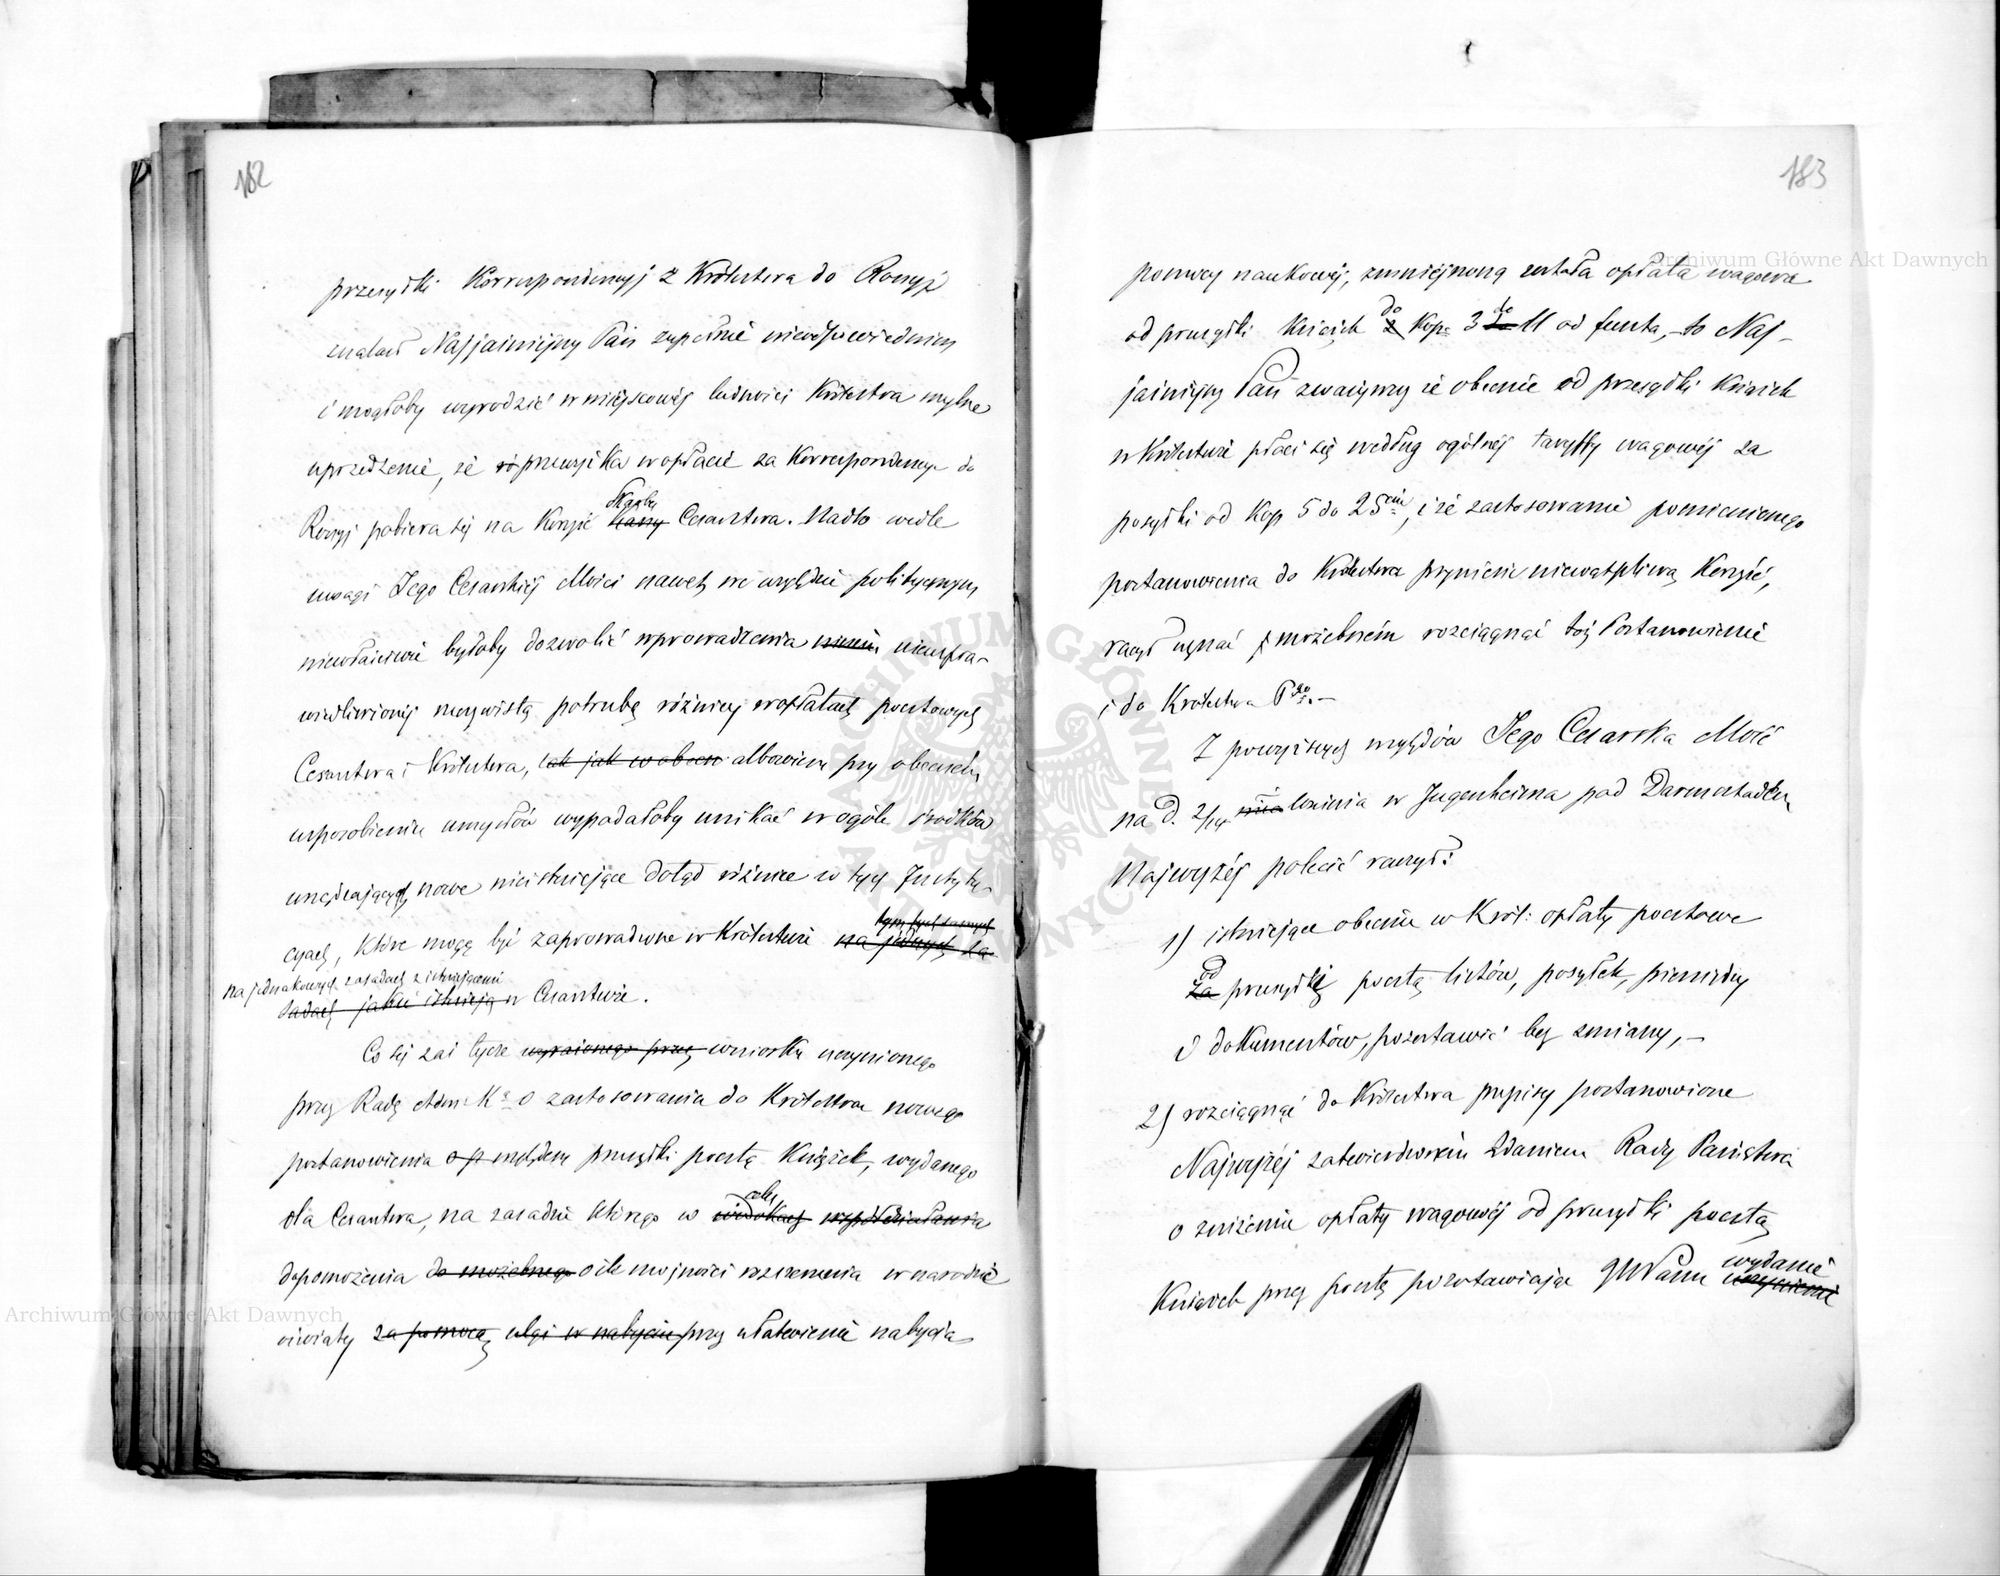 182
przesyłki Korrespondencyj z Królestwa do Rossyi
znalazł Najjaśniejszy Pan zupełnie nieodpowiedniem
i mogłoby wyrodzić w miejscowéj ludności Królestwa mylne
uprzedzenie, że przewyżka w opłacie za Korrespondencye do
Rossyi pobiera się na Korzyść Skarbu Cesarstwa. Nadto wedle
uwagi Jego Cesarskiéj Mości nawet we względzie politycznym,
niewłaściwie byłoby dozwolić wprowadzenia nieuspra-
wiedliwionéj rzeczywistą potrzebą różnicy w opłatach pocztowych
Cesarstwa i Królestwa, tak jak w obecn albowiem przy obecném
usposobieniu umysłów wypadałoby unikać w ogóle środków
urządzających nowe nieistniejące dotąd różnice w tych Instytu-
cyach, które mogą być zaprowadzone w Królestwie na jednych za
na jednakowych zasadach z istniejącemi
sadach jakie istnieją w Cesarstwie.
Co się zaś tycze wyrażonego przez wniosku uczynionego
przez Radę Adm: Kr o zastosowania do Królestwa nowego
postanowienia względem przesyłki pocztą Książek, wydanego
dla Cesarstwa, na zasadzie którego w celu
widokach współdziałania
dopomożenia do możebnego o ile możności rozszerzenia w narodzie
oświaty za pomocą ulgi w nabyciu przez ułatwienie nabycia
183
pomocy naukowéj, zmniejszoną została opłata wagowa
od przesyłki Książek do Kop. 3 do 11 od funta, to Naj-
jaśniejszy Pan zważywszy że obecnie od przesyłki Książek
w Królestwie płaci się według ogólnéj taryffy wagowéj za
posyłki od Kop 5 do 25ciu, i że zastosowanie pomienionego
postanowienia do Królestwa przyniesie niewątpliwą Korzyść,
raczył uznać możebném rozciągnąć toż Postanowienie
i do Królestwa Pgo.-
Z powyższych względów Jego Cesarska Mość
na d. 2/14 w Jugenheima pod Darmstadtem
Najwyżéj polecić raczył:
1) istniejące obecnie w Król: opłaty pocztowe
od
za przesyłki pocztą listów, posyłek, pieniędzy
i dokumentów, pozostawić bez zmiany,-
2) rozciągnąć do Królestwa przepisy postanowione
Najwyżéj zatwierdzoném Zdaniem Rady Państwa
o zniżeniu opłaty wagowéj od przesyłki pocztą
Książek przez pocztę pozostawiając JW Panu wydanie
uczynienie
Archiwum Główne Akt Dawnych
Archiwum Główne Akt Dawnych
ARCHIWUM GŁÓWNE AKT DAWNYCH